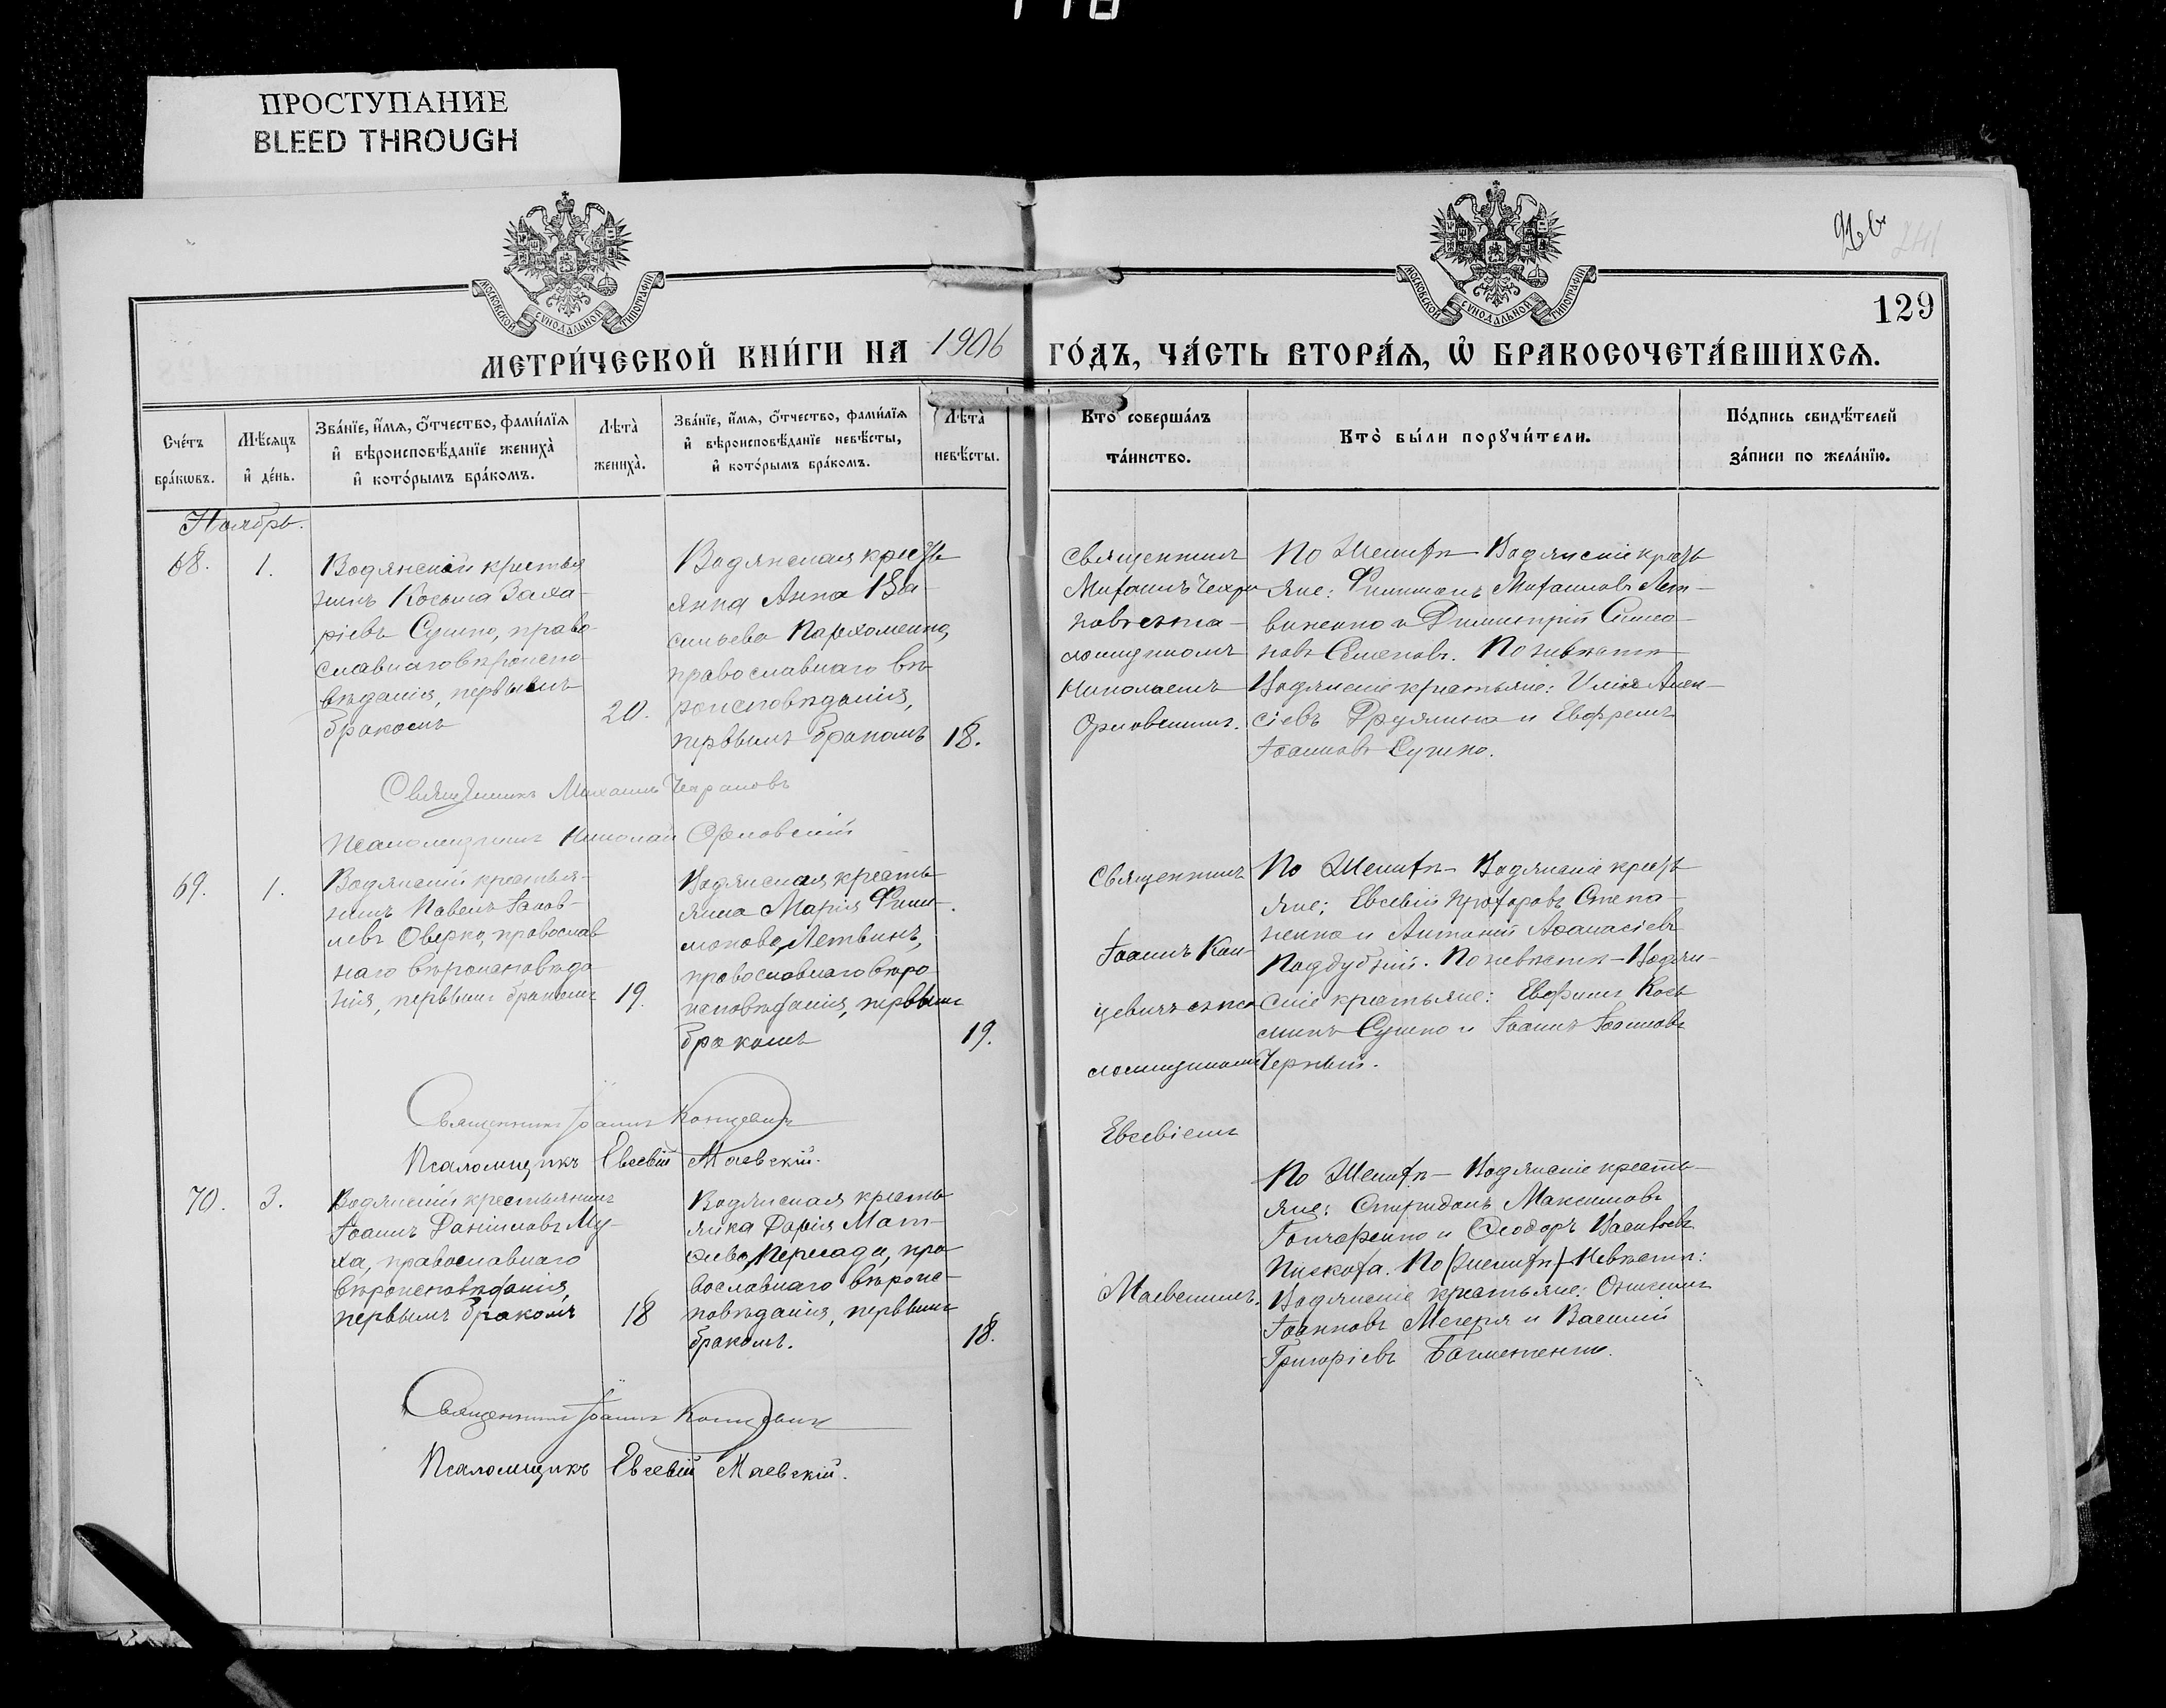 ПРОСТУПАНИЕ
BLEED THROUGH
МОСКОВСКОЙ СѴНОДАЛЬНОЙ ТИПОГРАФІИ
МОСКОВСКОЙ СѴНОДАЛЬНОЙ ТИПОГРАФІИ
129
МЕТРИ́ЧЕСКОЙ КНИ́ГИ НА 1906 ГО́ДЪ, ЧА́СТЬ ВТОРА́Ѧ, Ѽ БРАКОСОЧЕТА́ВШИХСѦ.
Сче́тъ бра́кѡвъ.
Мѣ́сяцъ и҆ де́нь.
Зва́нїе, и҆́мѧ, ѻ҆́тчество, фами́лїѧ
и҆ вѣроисповѣ́данїе жениха̀
и҆ кото́рымъ бра́комъ.
Лѣ́та̀ жениха̀.
Зва́нїе, и҆́мѧ, ѻ҆́тчество, фами́лїѧ
и҆ вѣроисповѣ́данїе невѣ́сты,
и҆ кото́рымъ бра́комъ.
Лѣ́та̀ невѣ́сты.
Кто̀ соверша́лъ
та́инство.
Кто̀ бы́ли порꙋчи́тели.
По́дпись свидѣ́телей
за́писи по жела́нїю.
Ноябрь.
68.
1.
Водянскій крестья
нинъ Косьма Заха-
ріевъ Сушко, право
славнаго вѣроиспо
вѣданія, первымъ
бракомъ
20.
Водянская кресть
янка Анна Ва-
сильева Пархоменко,
православнаго вѣ
роисповѣданія,
первымъ бракомъ
18.
Священникъ
Михаилъ
съ пса-
ломщикомъ
Николаемъ
Орловскимъ.
По Женихѣ Водянскіе кресть
яне: Филимонъ Михаиловъ Лет-
виненко и Димитрій Симео-
новъ Семеновъ. По невѣстѣ
Водянскіе крестьяне: Илія Алек-
сіевъ и Евфремъ
Іоанновъ Сушко.
Священникъ Михаилъ
Псаломщикъ Николай Орловскій
69.
1.
Водянскій крестья-
нинъ Павелъ Іаков-
левъ Оверко, православ
наго вѣроисповѣда
нія, первымъ бракомъ
19.
Водянская кресть
янка Марія Фили-
монова Летвинъ,
православнаго вѣро
исповѣданія, первымъ
бракомъ
19.
Священникъ
Іоаннъ Кон
цевичъ съ пса
ломщикомъ
Евсевіемъ
Маевскимъ.
По Женихѣ Водянскіе кресть
яне: Евсевій Прохоровъ Степа-
ненко и Антоній Аѳанасіевъ
Поддубный. По невѣстѣ Водян-
скіе крестьяне: Евфимъ Кось
минъ Сушко и Іоаннъ Іоанновъ
Черный.
Священникъ Іоаннъ Концевичъ
Псаломщикъ Евсевій Маевскій.
70.
3.
Водянскій крестьянинъ
Іоаннъ Даніиловъ Му-
ха, православнаго
вѣроисповѣданія,
первымъ бракомъ
18
Водянская кресть
янка Дарія Мат-
ѳіева Пересада, пра
вославнаго вѣроис-
повѣданія, первымъ
бракомъ.
18.
По Женихѣ Водянскіе кресть-
яне: Спиридонъ Максимовъ
Гончаренко и Ѳеодоръ Васильевъ
По (Женихѣ) Невѣстѣ:
Водянскіе крестьяне: Онисимъ
Іоанновъ Мегеря и Василій
Григоріевъ
Священникъ Іоаннъ Концевичъ
Псаломщикъ Евсевій Маевскій.